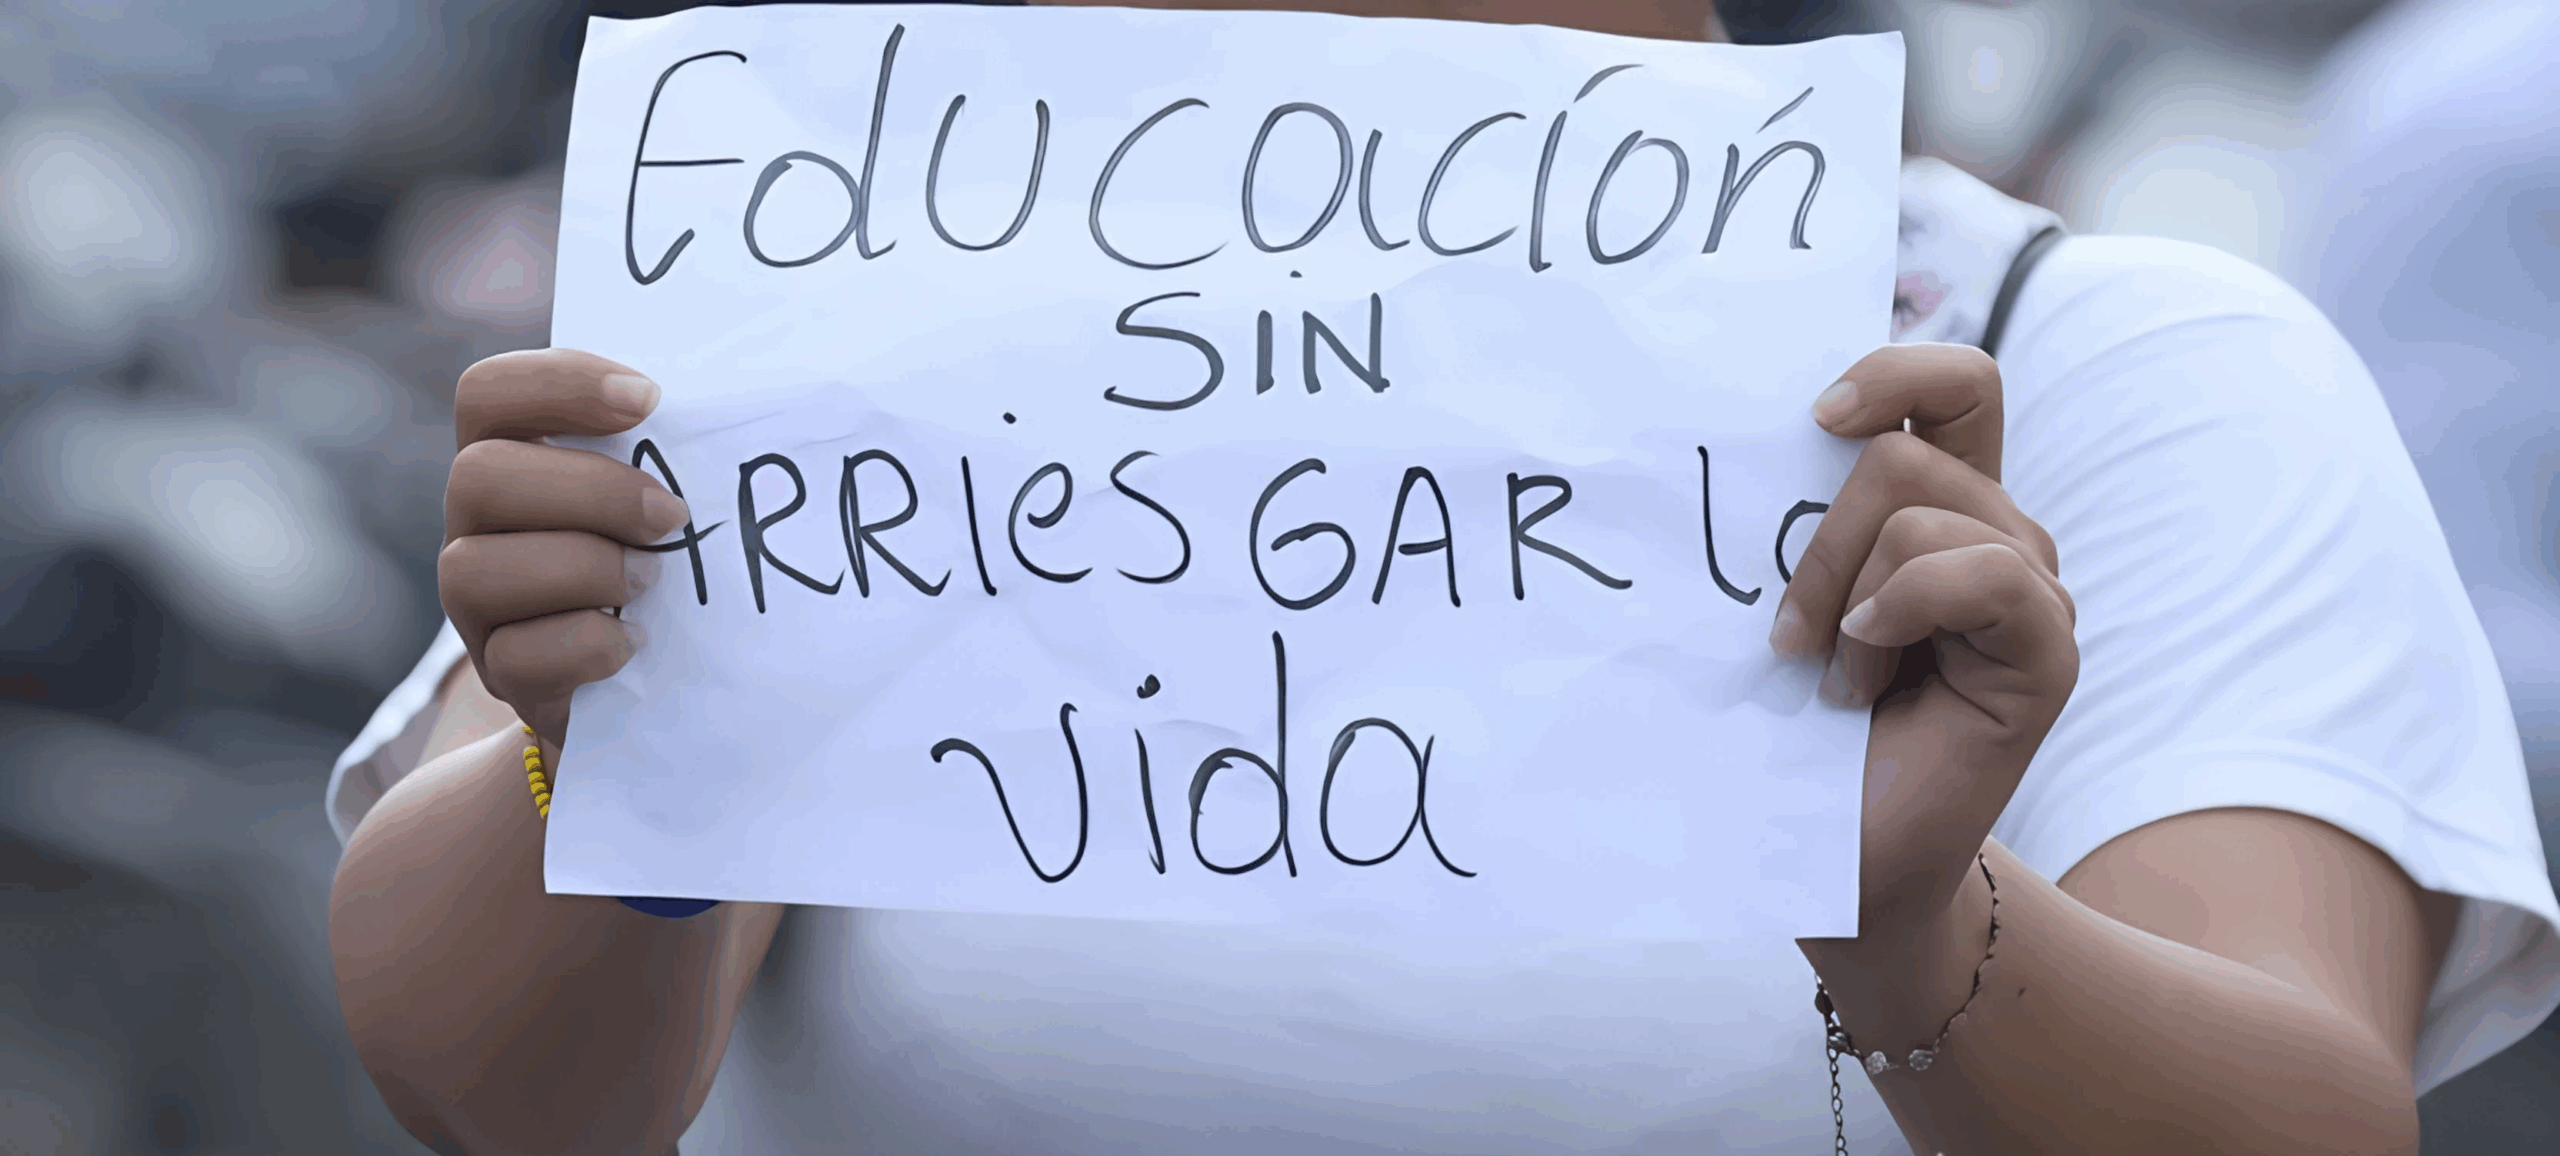 Educación
SIN
ARRIesGAR la
vida